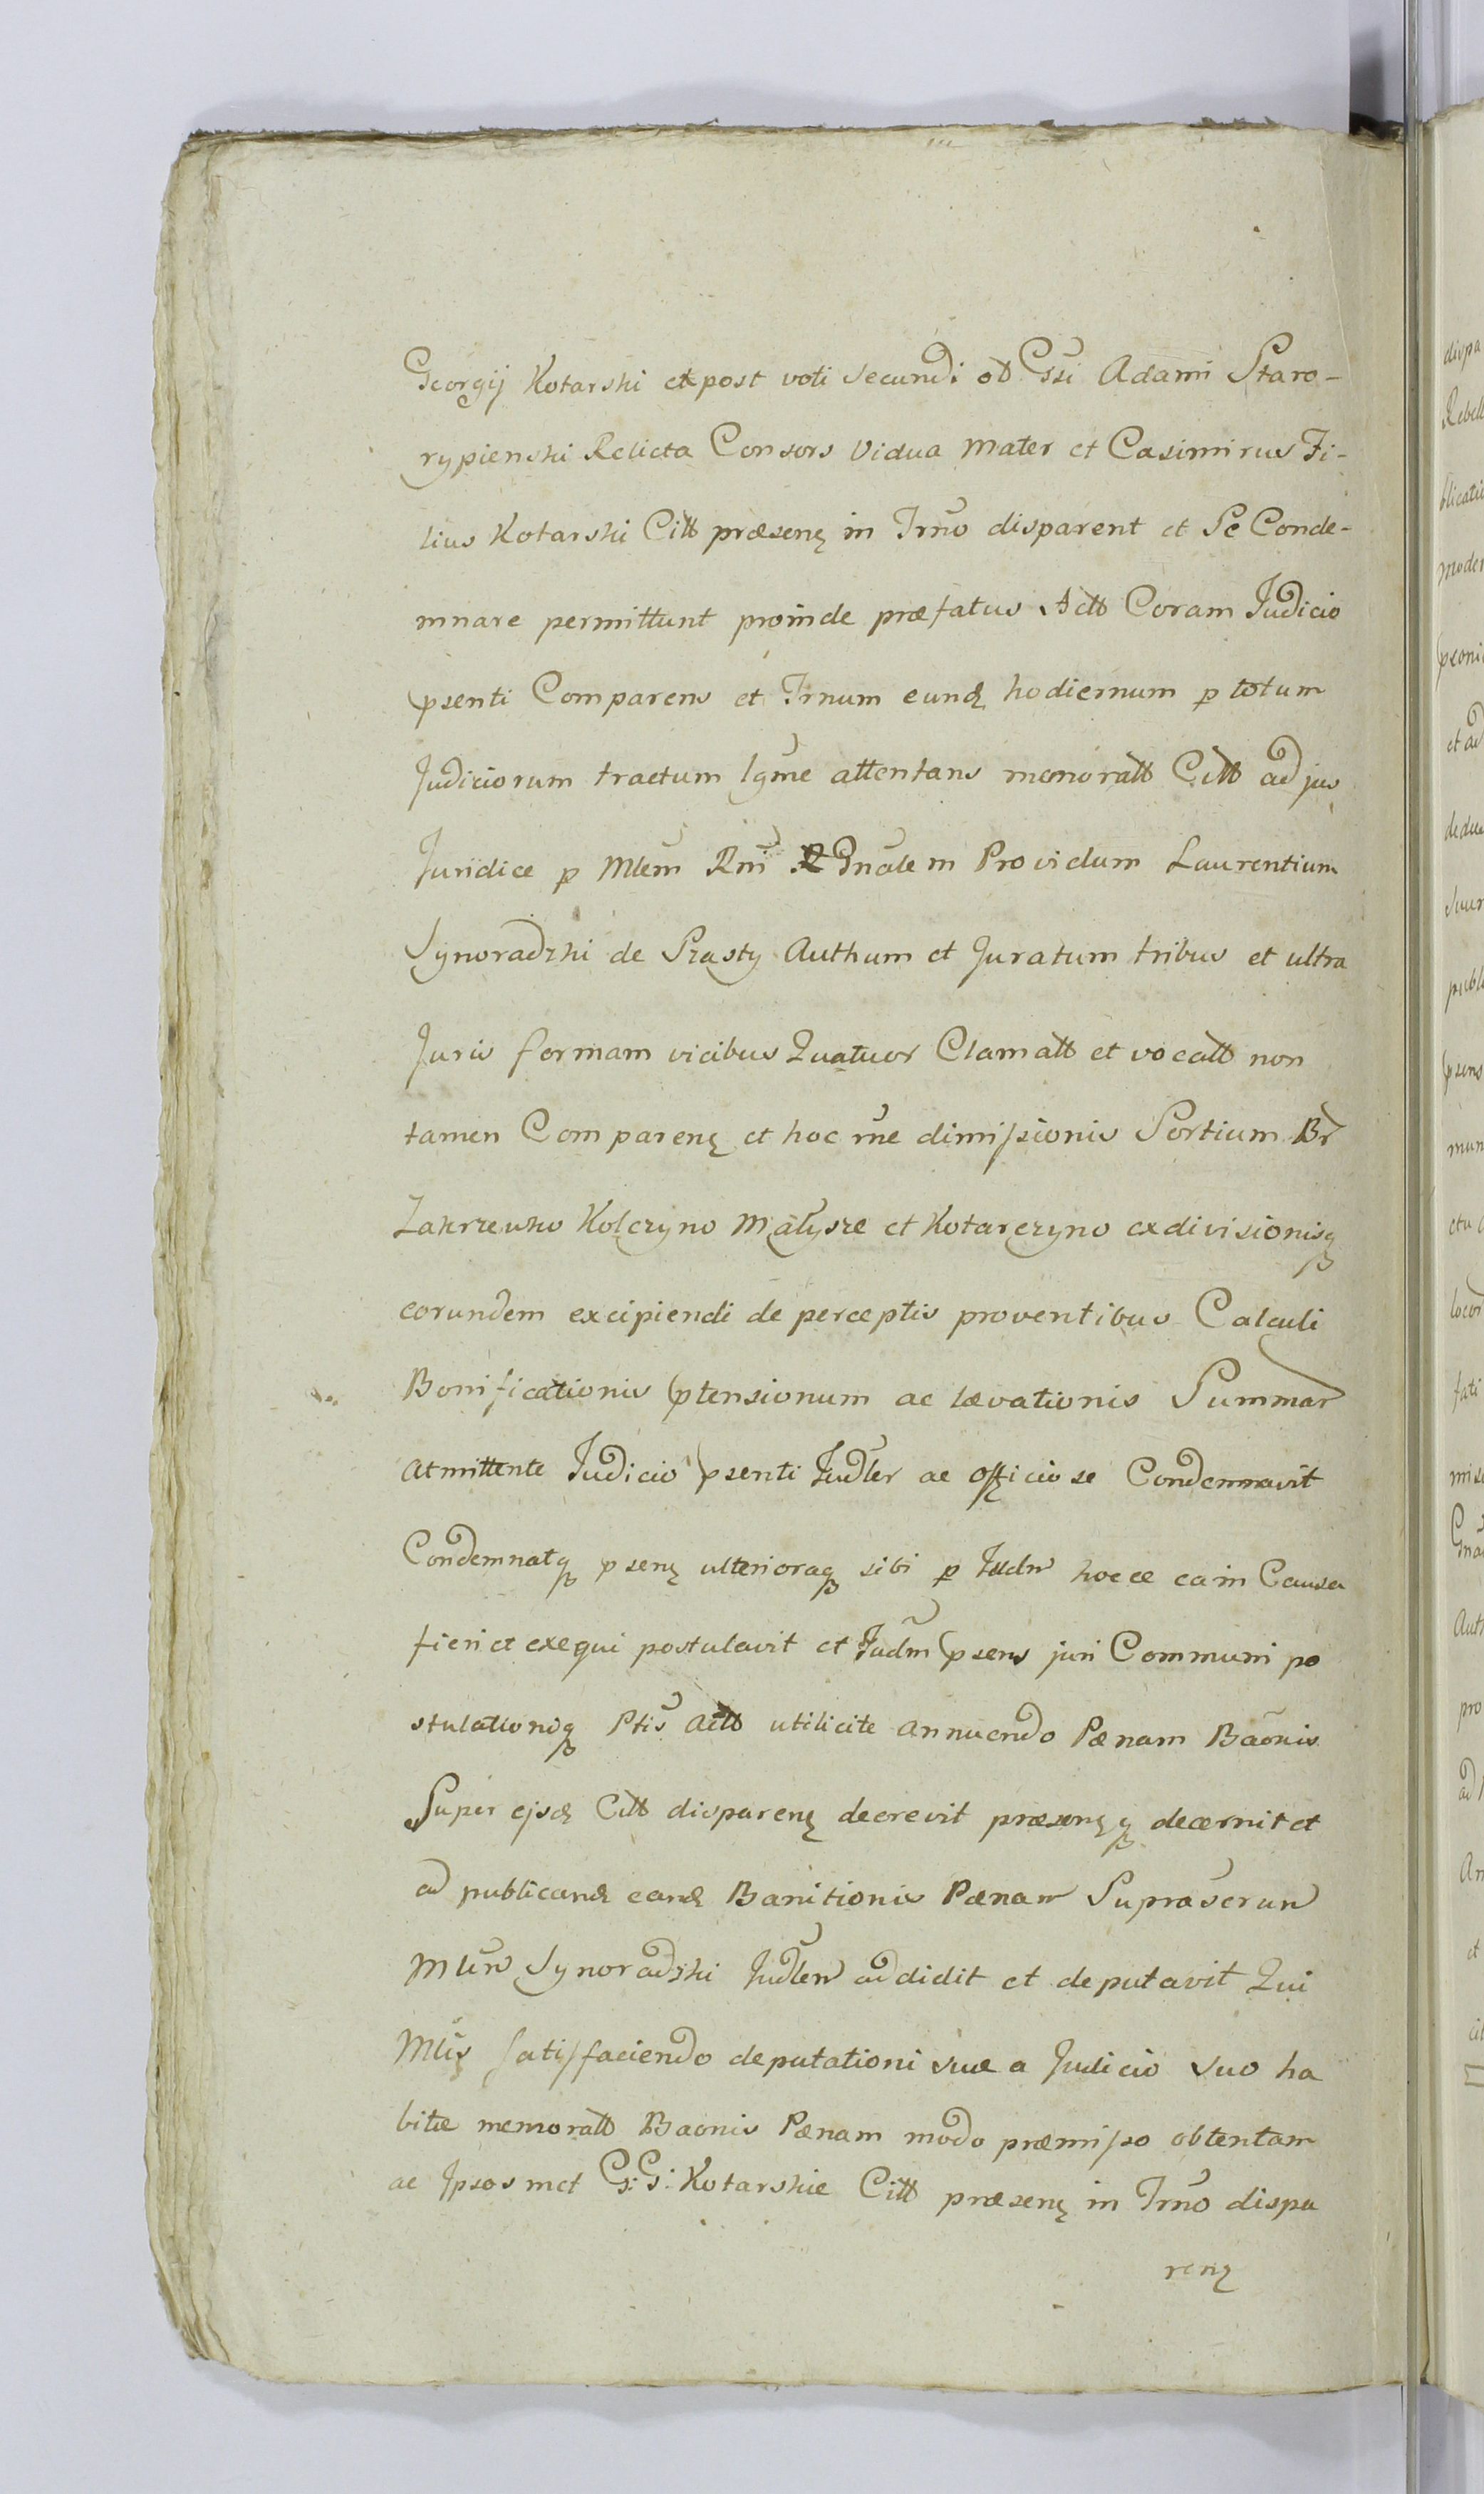 Georgij Kotarski et post voti secundi od Gsi Adami Staro-
rypienski Relicta Consors Vidua Mater et Casimirus Fi-
lius Kotarski Citt præsenz in Trno disparent et Se Conde-
mnare permittunt proinde præfatus Actt Coram Judicio
psenti Comparens et Trnum eundz hodiernum p totum
Judiciorum tractum lgme attentans memoratt Citt ad jus
Juridice p Mlem Rni Gnalem Providum Laurentium
Synoradzki de Szasty Authum et Juratum tribus et ultra
Juris formam vicibus Quatuor Clamatt et vocatt non
tamen Comparenz et hoc rne dimissionis Sortium Br
Zakrzewko Kolczyno Małysze et Kotarczyno exdivisionisq
eorundem excipiendi de perceptis proventibus Calculi
Bonificationis ptensionum ac lævationis Summar
atmittente Judicio psenti Judler ac officiose Condemnavit
Condemnatq psenz ulterioraq sibi p Judm hocce ea in Causa
fieri et exequi postulavit et Judm psens juri Communi po
stulationiq Ptis Actt utilicite annuendo Pænam Baonis
Super ejsd Citt disparenz decrevit præsenzq decernit et
ad publicand eand Banitionis Pænam Supraserun
Mlen Synoradzki Judlen addidit et deputavit Qui
Mlis satisfaciendo deputationi suæ a Judicio suo ha
bitæ memoratt Baonis Pænam modo præmisso obtentam
ac Ipsosmet G:G: Kotarskie Citt præsenz in Trno dispa
renz
divpa
blicatio
moder
et ad
publ
psens
mun
fati
Auth
pro
et